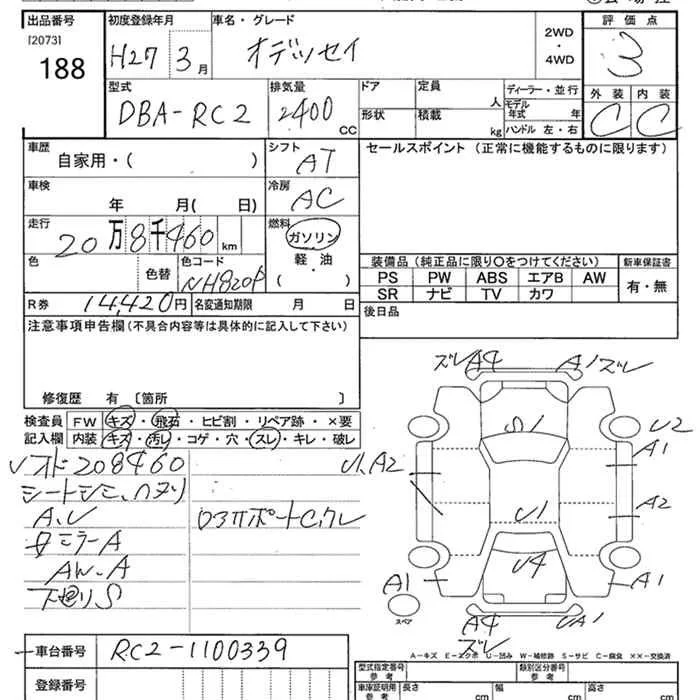 出品番号 初度登録年月 車名・グレード 2WD・4WD 評価点
[2073]
188 H27 3月 オデッセイ 3
型式 排気量 ドア 定員 人 ディーラー・並行 外装 内装
DBA-RC2 2400 CC 形状 積載 kg モデル年式 年 ハンドル 左・右 C C
車歴 自家用・( ) シフト AT セールスポイント (正常に機能するものに限ります)
車検 年 月( 日) 冷房 AC
走行 20万8千460km 燃料 ガソリン 軽・油 ( )
色 色替 色コード NH820P
装備品 (純正品に限り○をつけてください) 新車保証書
PS PW ABS エアB AW 有・無
SR ナビ TV カワ
R券 14,420円 名変通知期限 月 日 後日品
注意事項申告欄(不具合内容等は具体的に記入して下さい)
修復歴 有 〔箇所 〕
検査員 FW キズ・飛石・ヒビ割・リペア跡・×要
記入欄 内装 キズ・汚レ・コゲ・穴・スレ・キレ・破レ
208460
A、U
ミラーA
AW-A
ズレA4 A1ズレ
S1 U2
A1
U1、A2 U1 A2
U4
A1 A1
スペア
A4 UA1
ズレ
A…キズ E…エクボ U…凹み W…補修跡 S…サビ C…腐食 ××…交換済
車台番号 RC2-1100339
登録番号
型式指定番号 参考 類別区分番号 参考
車庫証明用 参考 長さ cm 幅 cm 高さ cm